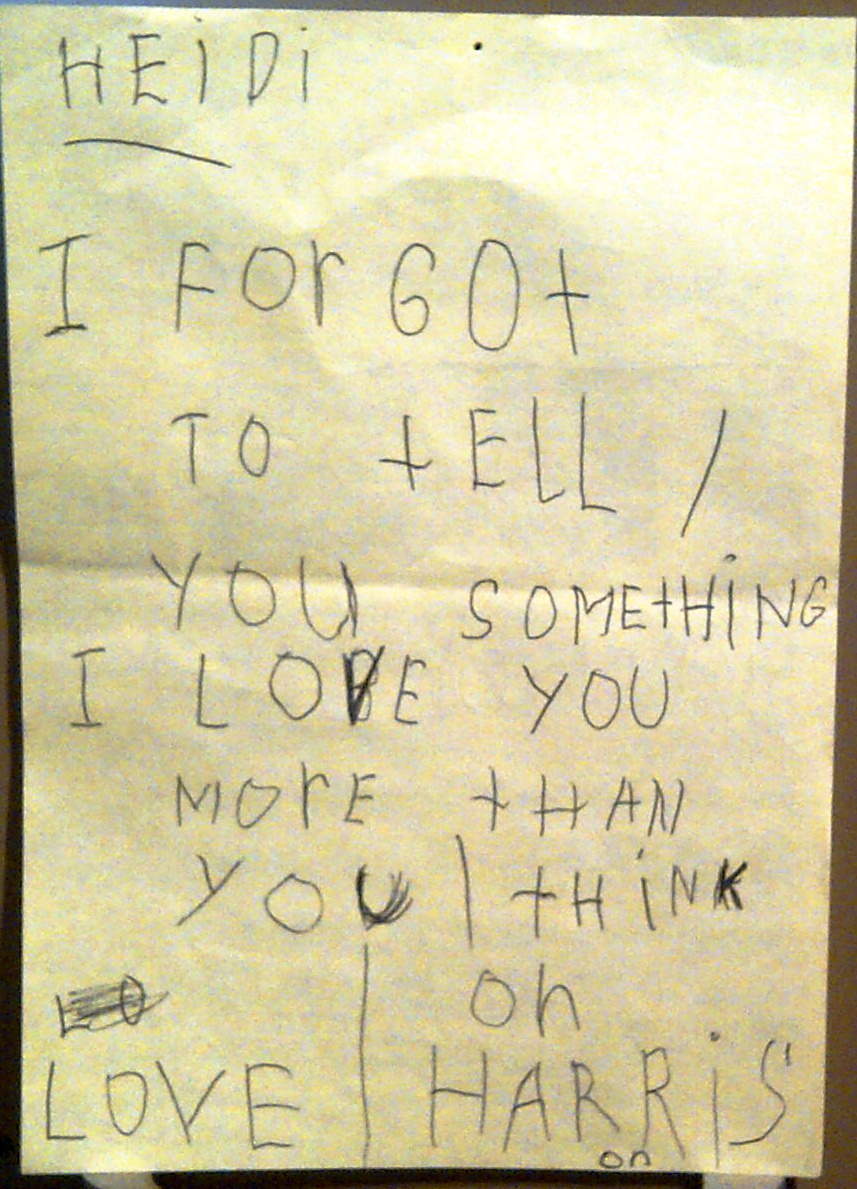 HEiDi
I FOrGOt
TO tELL /
YOU SOMEtHiNG
I LOVE YOU
MOrE tHAN
YOU | tHiNK
oh
LOVE | HARRiS
on